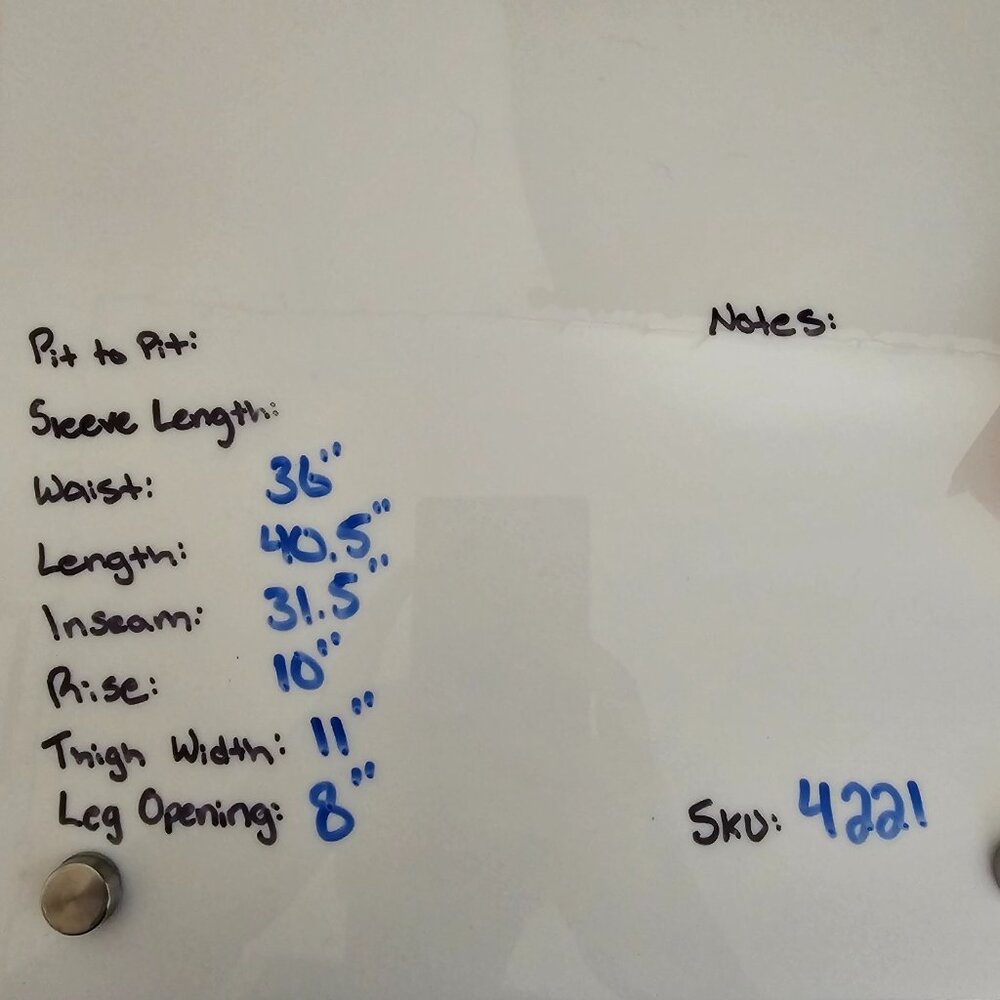 Notes:
Pit to Pit:
Sleeve Length:
Waist: 36"
Length: 40.5"
Inseam: 31.5"
Rise: 10"
Thigh Width: 11"
Leg Opening: 8"
Sku: 4221